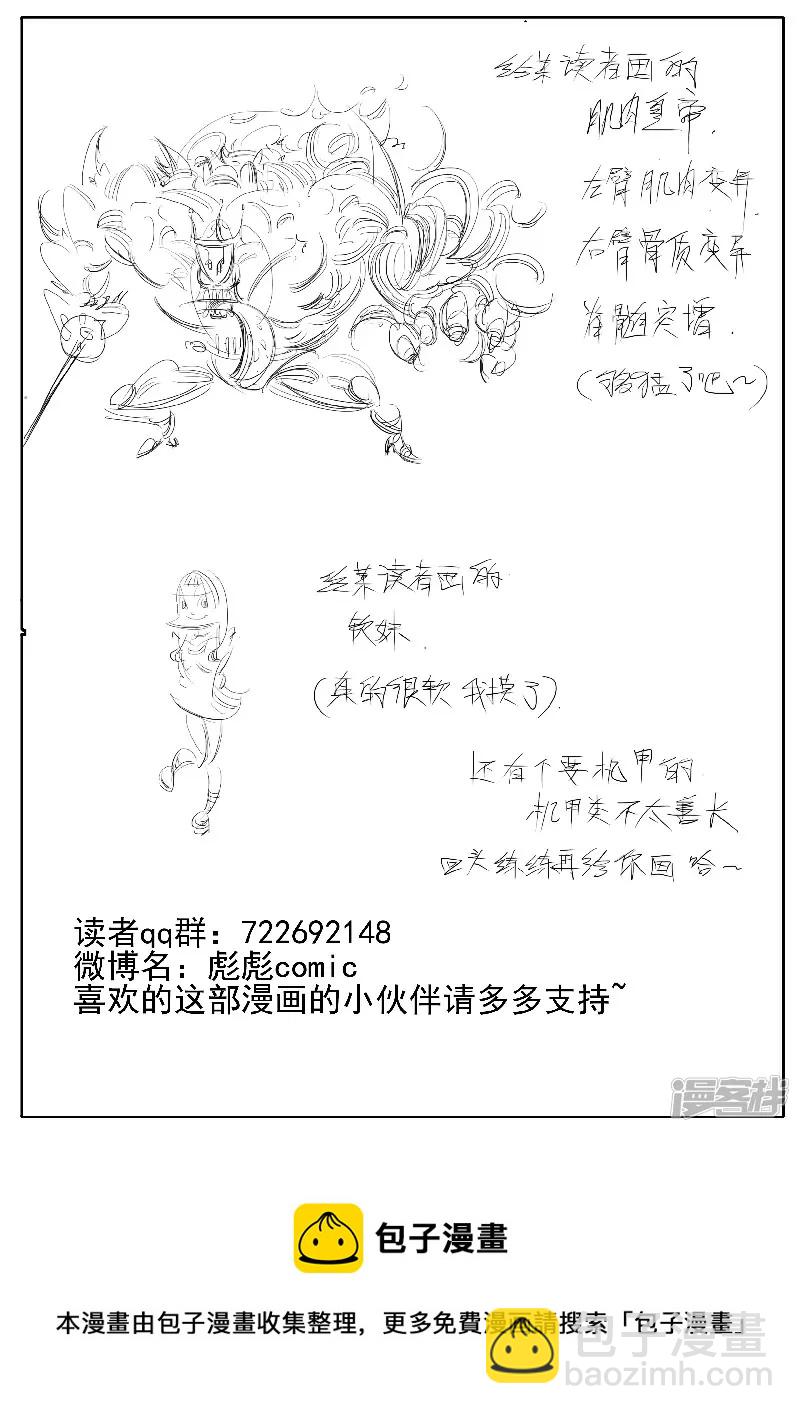 给某读者画的
肌肉皇帝.
左臂肌肉变异
右臂骨质变异
脊髓突增.
(够猛了吧~)
给某读者画的
软妹.
(真的很软 我摸了)
还有个要机甲的
机甲类不太善长
回头练练再给你画 哈~
读者qq群：722692148
微博名：彪彪comic
喜欢的这部漫画的小伙伴请多多支持~
漫客栈
包子漫畫
本漫畫由包子漫畫收集整理，更多免費漫画請搜索「包子漫畫」
包子漫畫
baozimh.com